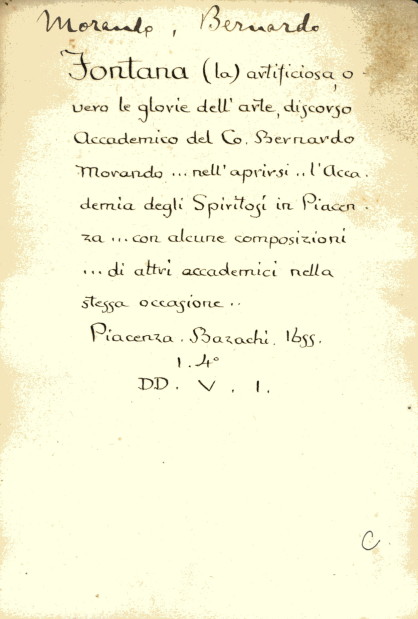 Morando, Bernardo
Fontana (la) artificiosa, o-
vero le glorie dell'arte, discorso
Accademico del Co. Bernardo
Morando ... nell'aprirsi .. l'Acca.
demia degli Spiritosi in Piacen.
za ... con alcune composizioni
... di altri accademici nella
stessa occasione ..
Piacenza. Bazachi. 1655.
1. 4°
DD. V. I.
C